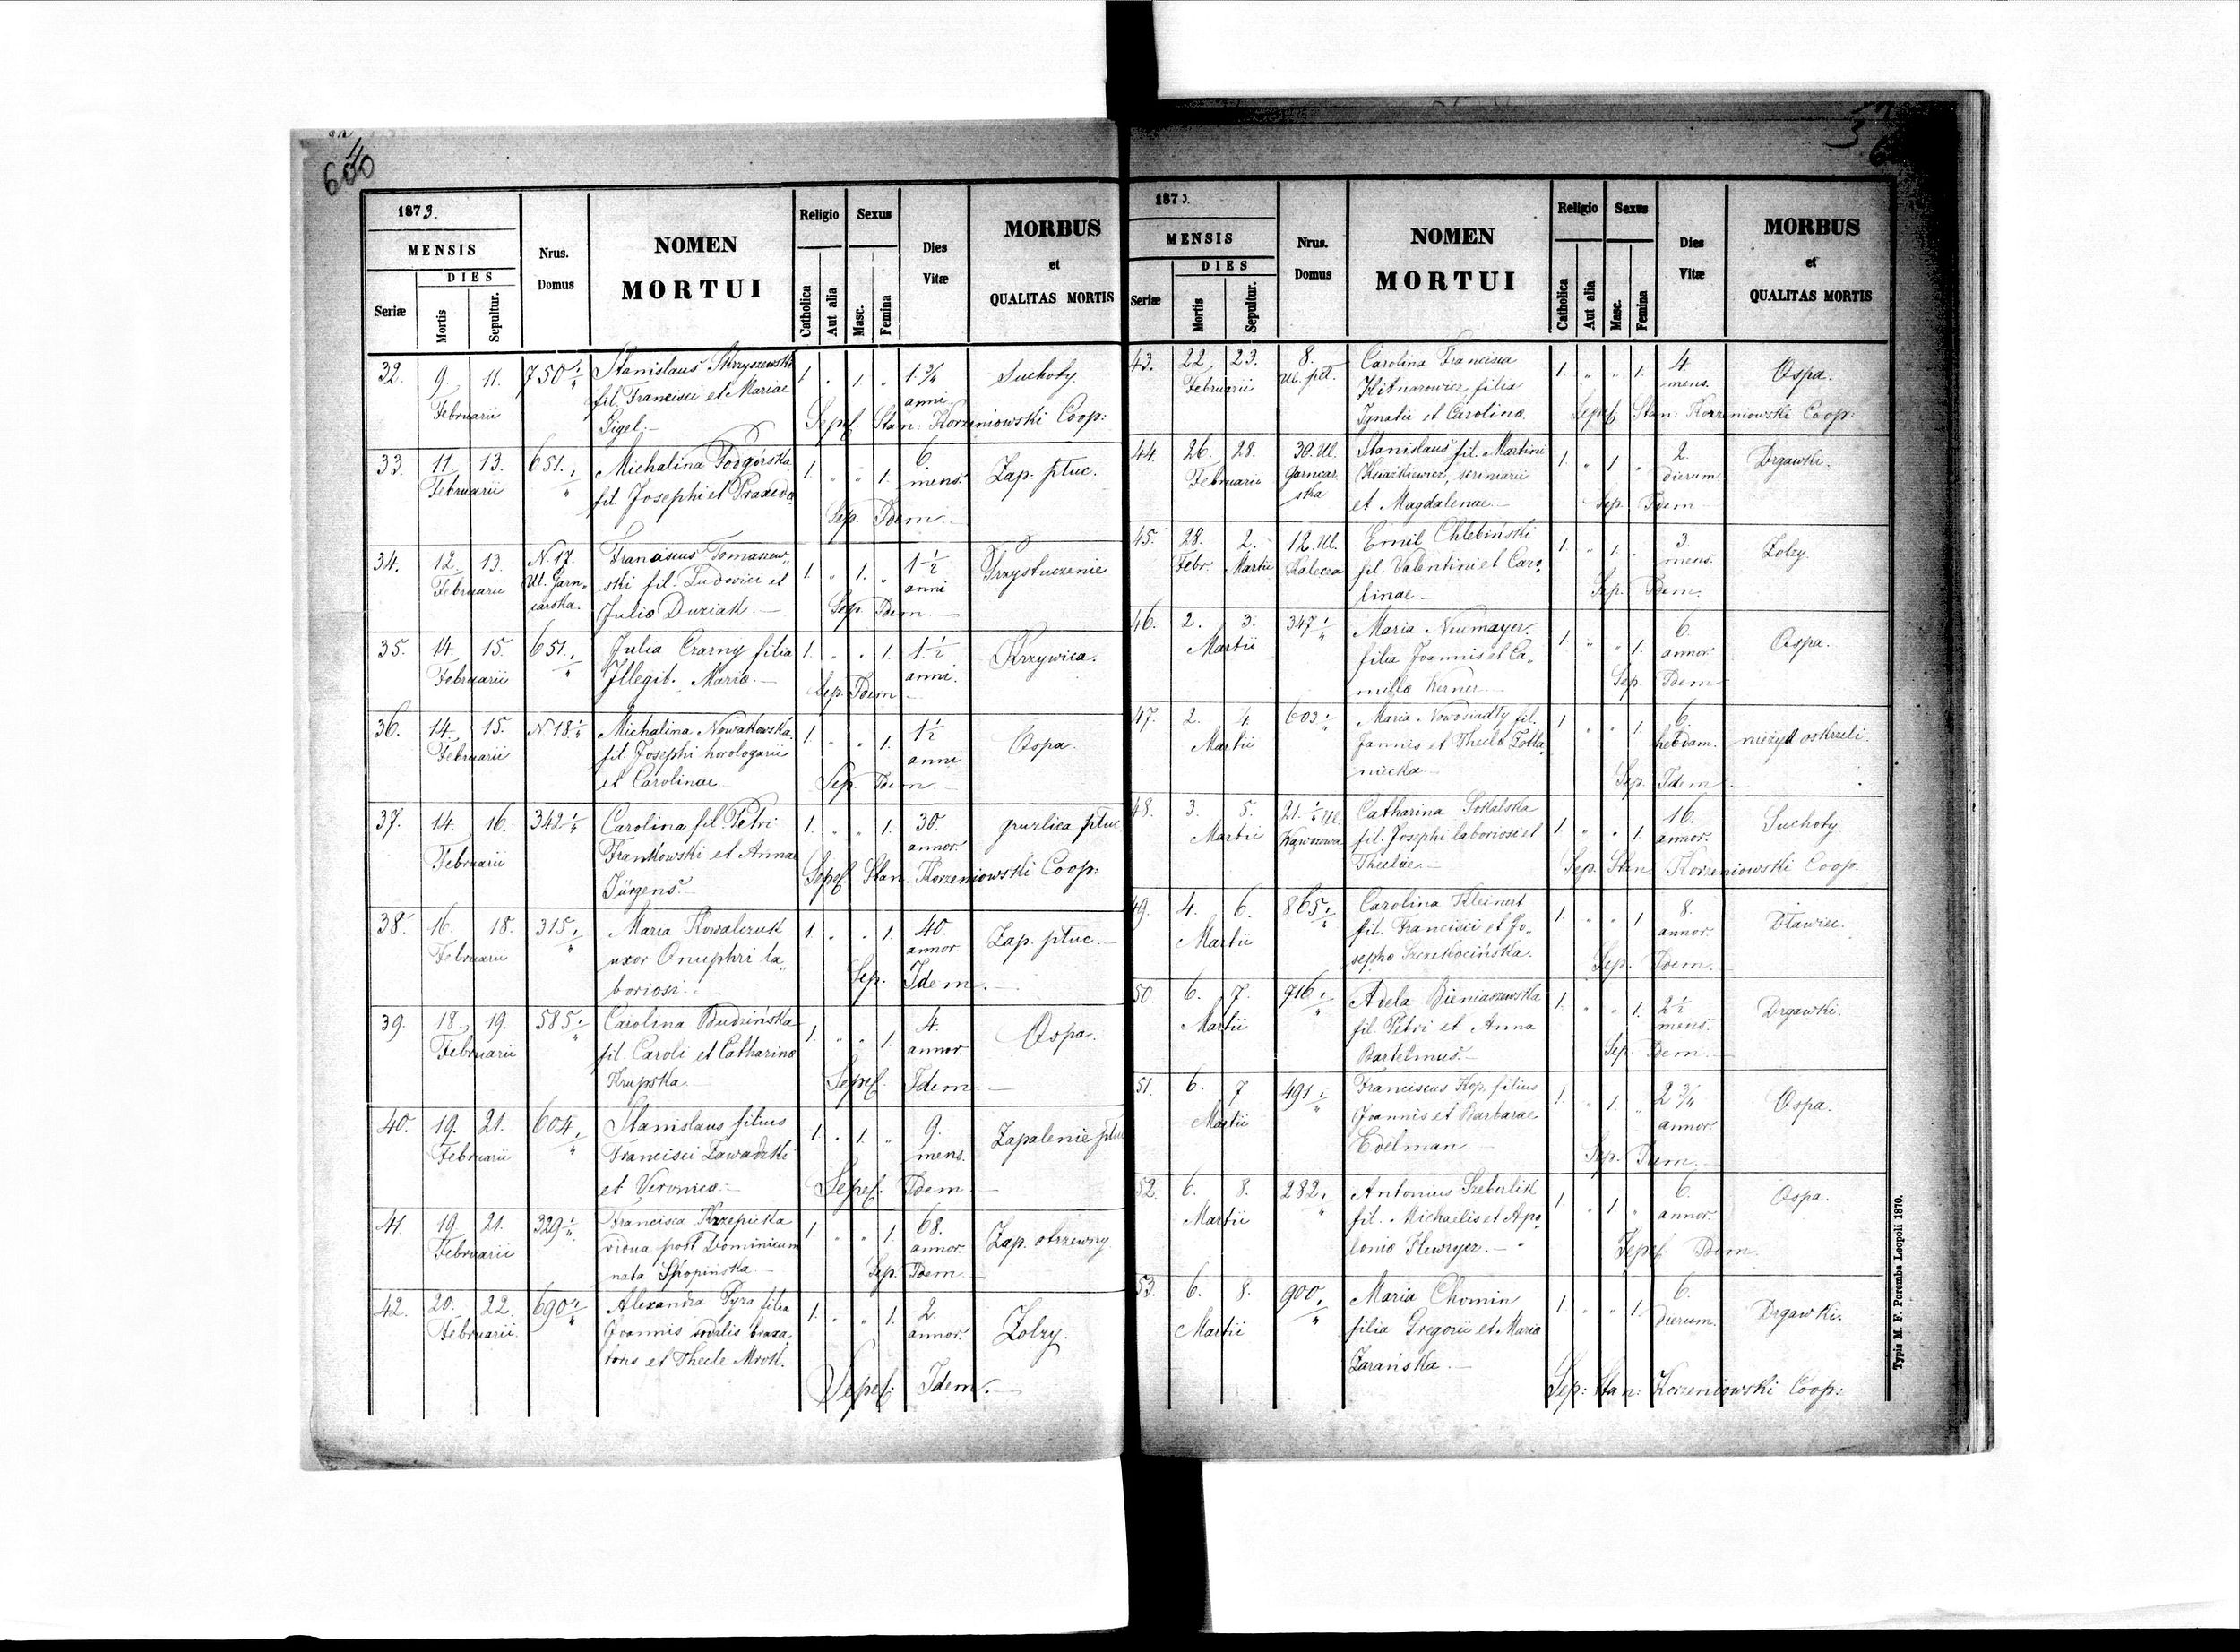 640
1873.
MENSIS
DIES
Seriæ
Mortis
Sepultur.
Nrus.
Domus
NOMEN
MORTUI
Religio
Catholica
Aut alia
Sexus
Masc.
Femina
Dies
Vitæ
MORBUS
et
QUALITAS MORTIS
32. 9. 11. 750 1/4 Stanislaus Skryszewski 1. „ 1. „ 1. 3/4 Suchoty
Februarii fil. Francisci et Mariae anni
Gigel.— Sepel. Stan: Korzeniowski Coop:
33. 11. 13. 651. 1/4 Michalina Podgórska 1. „ „ 1. 6. Zap. płuc.
Februarii fil. Josephi et Praxeda mens.
Sep. Idem.—
34. 12. 13. N. 17. Franciscus Tomaszew„ 1. „ 1. „ 1 1/2 Przystuczenie
Februarii Ul. Garn„ ski fil. Ludovici et anni
carska. Julia Duziak.— Sep. Idem.—
35. 14. 15. 651. 1/4 Julia Czarny filia 1. „ „ 1. 1. 1/2 Krzywica.
Februarii Illegit. Maria.— anni.
Sep. Idem—
36. 14. 15. N. 18 1/4 Michalina Nowakowska 1. „ „ 1. 1 1/2 Ospa.
Februarii fil. Josephi horologarii anni
et Carolinae Sep. Idem—
37. 14. 16. 342 1/4 Carolina fil. Petri 1. „ „ 1. 30. gruzlica płuc
Februarii Frankowski et Annae annor.
Jürgens.— Sepel. Stan. Korzeniowski Coop:
38. 16. 18. 315. 1/4 Maria Kowalczuk 1. „ „ 1. 40. Zap. płuc.—
Februarii uxor Onuphri la„ annor.
boriosi.— Sep. Idem.—
39. 18. 19. 585. 1/4 Carolina Budzińska 1. „ „ 1. 4. Ospa.
Februarii fil. Caroli et Catharina annor.
Krupska.— Sepel. Idem—
40. 19. 21. 604. 1/4 Stanislaus filius 1. „ 1. „ 9. Zapalenie płuc
Februarii Francisci Zawadzki mens.
et Veronica.— Sepel. Idem—
41. 19. 21. 329 1/4 Francisca Krzepicka 1. „ „ 1. 68. Zap. otrzewny
Februarii vidua post Dominicum annor.
nata Skopińska.— Sep. Idem.—
42. 20. 22. 690 1/4 Alexandra Pyra filia 1. „ „ 1. 2. Zolzy.
Februarii. Joannis sodalis braxa„ annor.
toris et Thecle Mrosk. Sepel: Idem.—
1873.
MENSIS
DIES
Seriæ
Mortis
Sepultur.
Nrus.
Domus
NOMEN
MORTUI
Religio
Catholica
Aut alia
Sexus
Masc.
Femina
Dies
Vitæ
MORBUS
et
QUALITAS MORTIS
43. 22. 23. 8. Carolina Francisca 1. „ „ 1. 4. Ospa.
Februarii Ul. pet. Kitnarowicz filia mens.
Ignatii et Carolina Sepel. Stan: Korzeniowski Coop:
44. 26. 28. 30. Ul. Stanislaus fil. Martini 1. „ 1. „ 2. Drgawki.
Februarii Garncar Ksiazkiewicz, scriniarii dierum
ska et Magdalenae.— Sep. Idem—
45. 28. 2. 12. Ul. Emil Chlebiński 1. „ 1. „ 3. Zolzy.
Febr. Martii Kalecza fil. Valentini et Caro„ mens.
linae.— Sep. Idem.
46. 2. 3. 347 1/4 Maria Neumayer 1. „ „ 1. 6. Ospa.
Martii filia Joannis et Ca„ annor.
milla Kerner— Sep. Idem—
47. 2. 4. 603 1/4 Maria Nowosiadly fil. 1. „ „ 1. 6. nieżyt oskrzeli.
Martii Joannis et Thecla Zołta„ hebdam.
niecka— Sep. Idem—
48. 3. 5. 21. 1/4 Ul. Catharina Sokalska 1. „ „ 1. 16. Suchoty
Martii Kąwozowa fil. Josephi laboriosi et annor.
Theclae.— Sep. Stan. Korzeniowski Coop.
49. 4. 6. 865 1/4 Carolina Kleinert 1. „ „ 1. 8. Dławiec.
Martii fil. Francisci et Jo„ annor
sepha Szczekocińska. Sep. Idem.—
50. 6. 7. 716 1/4 Adela Bieniaszewska 1. „ „ 1. 2 1/2 Drgawki.
Martii fil. Petri et Anna mens.
Bartelmuś.— Sep. Idem—
51. 6. 7 491 1/4 Franciscus Kop. filius 1. „ 1. „ 2 3/4 Ospa.
Martii Joannis et Barbarae annor.
Edelman— Sep. Idem.—
52. 6. 8. 282. 1/4 Antonius Szeterlik 1. „ 1. „ 6. Ospa.
Martii fil. Michaelis et Apo„ annor.
lonia Flewryer.— Sepel. Idem.
53. 6. 8. 900. 1/4 Maria Chomin 1. „ „ 1. 6. Drgawki.
Martii filia Gregorii et Maria dierum.
Zarańska.— Sep: Stan: Korzeniowski Coop:
Typis M. F. Poremba Leopoli 1870.